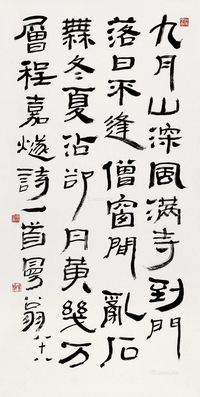 九月山深風滿寺到門
落日不逢僧窗間亂石
無冬夏沾卻丹黃幾万
層程嘉燧詩一首曼翁八十八